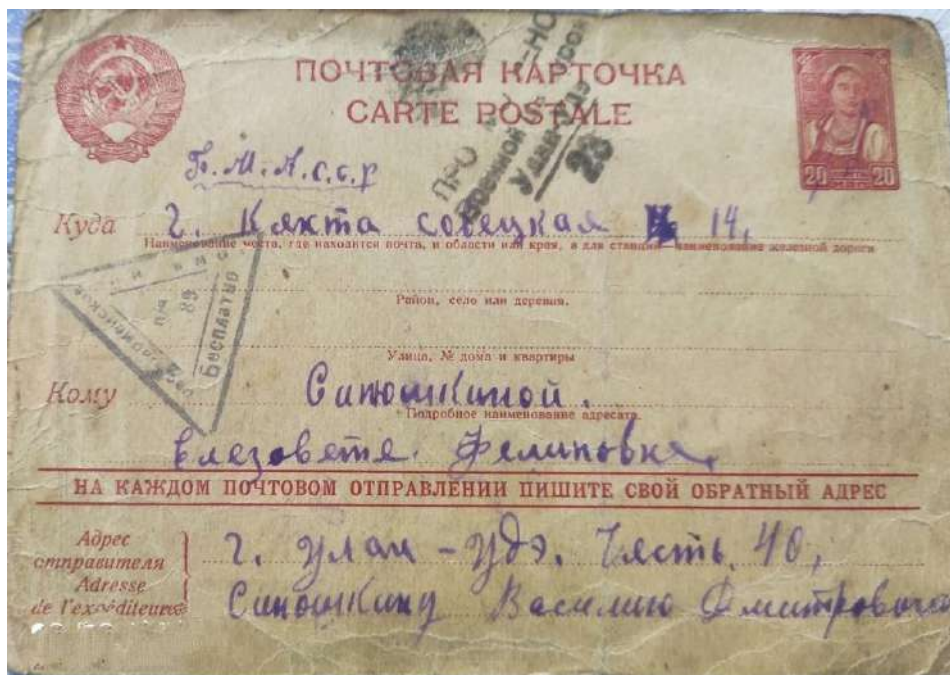 ПОЧТОВАЯ КАРТОЧКА
CARTE POSTALE
20 20
Б.М.А.С.С.Р
Военной
Улан-Удэ
23
Куда г. Кяхта совецкая № 14,
Наименование места, где находится почта, и области или края, а для станций наименование железной дороги
Район, село или деревня.
Бесплатно
68
Улица, № дома и квартиры
Кому Синюшкиной.
Подробное наименование адресата.
Елезовете. Фелиповне,
НА КАЖДОМ ПОЧТОВОМ ОТПРАВЛЕНИИ ПИШИТЕ СВОЙ ОБРАТНЫЙ АДРЕС
Адрес отправителя г. Улан-Удэ. Часть 40,
Adresse de l'expéditeur Синюшкину Василию Дмитровичу